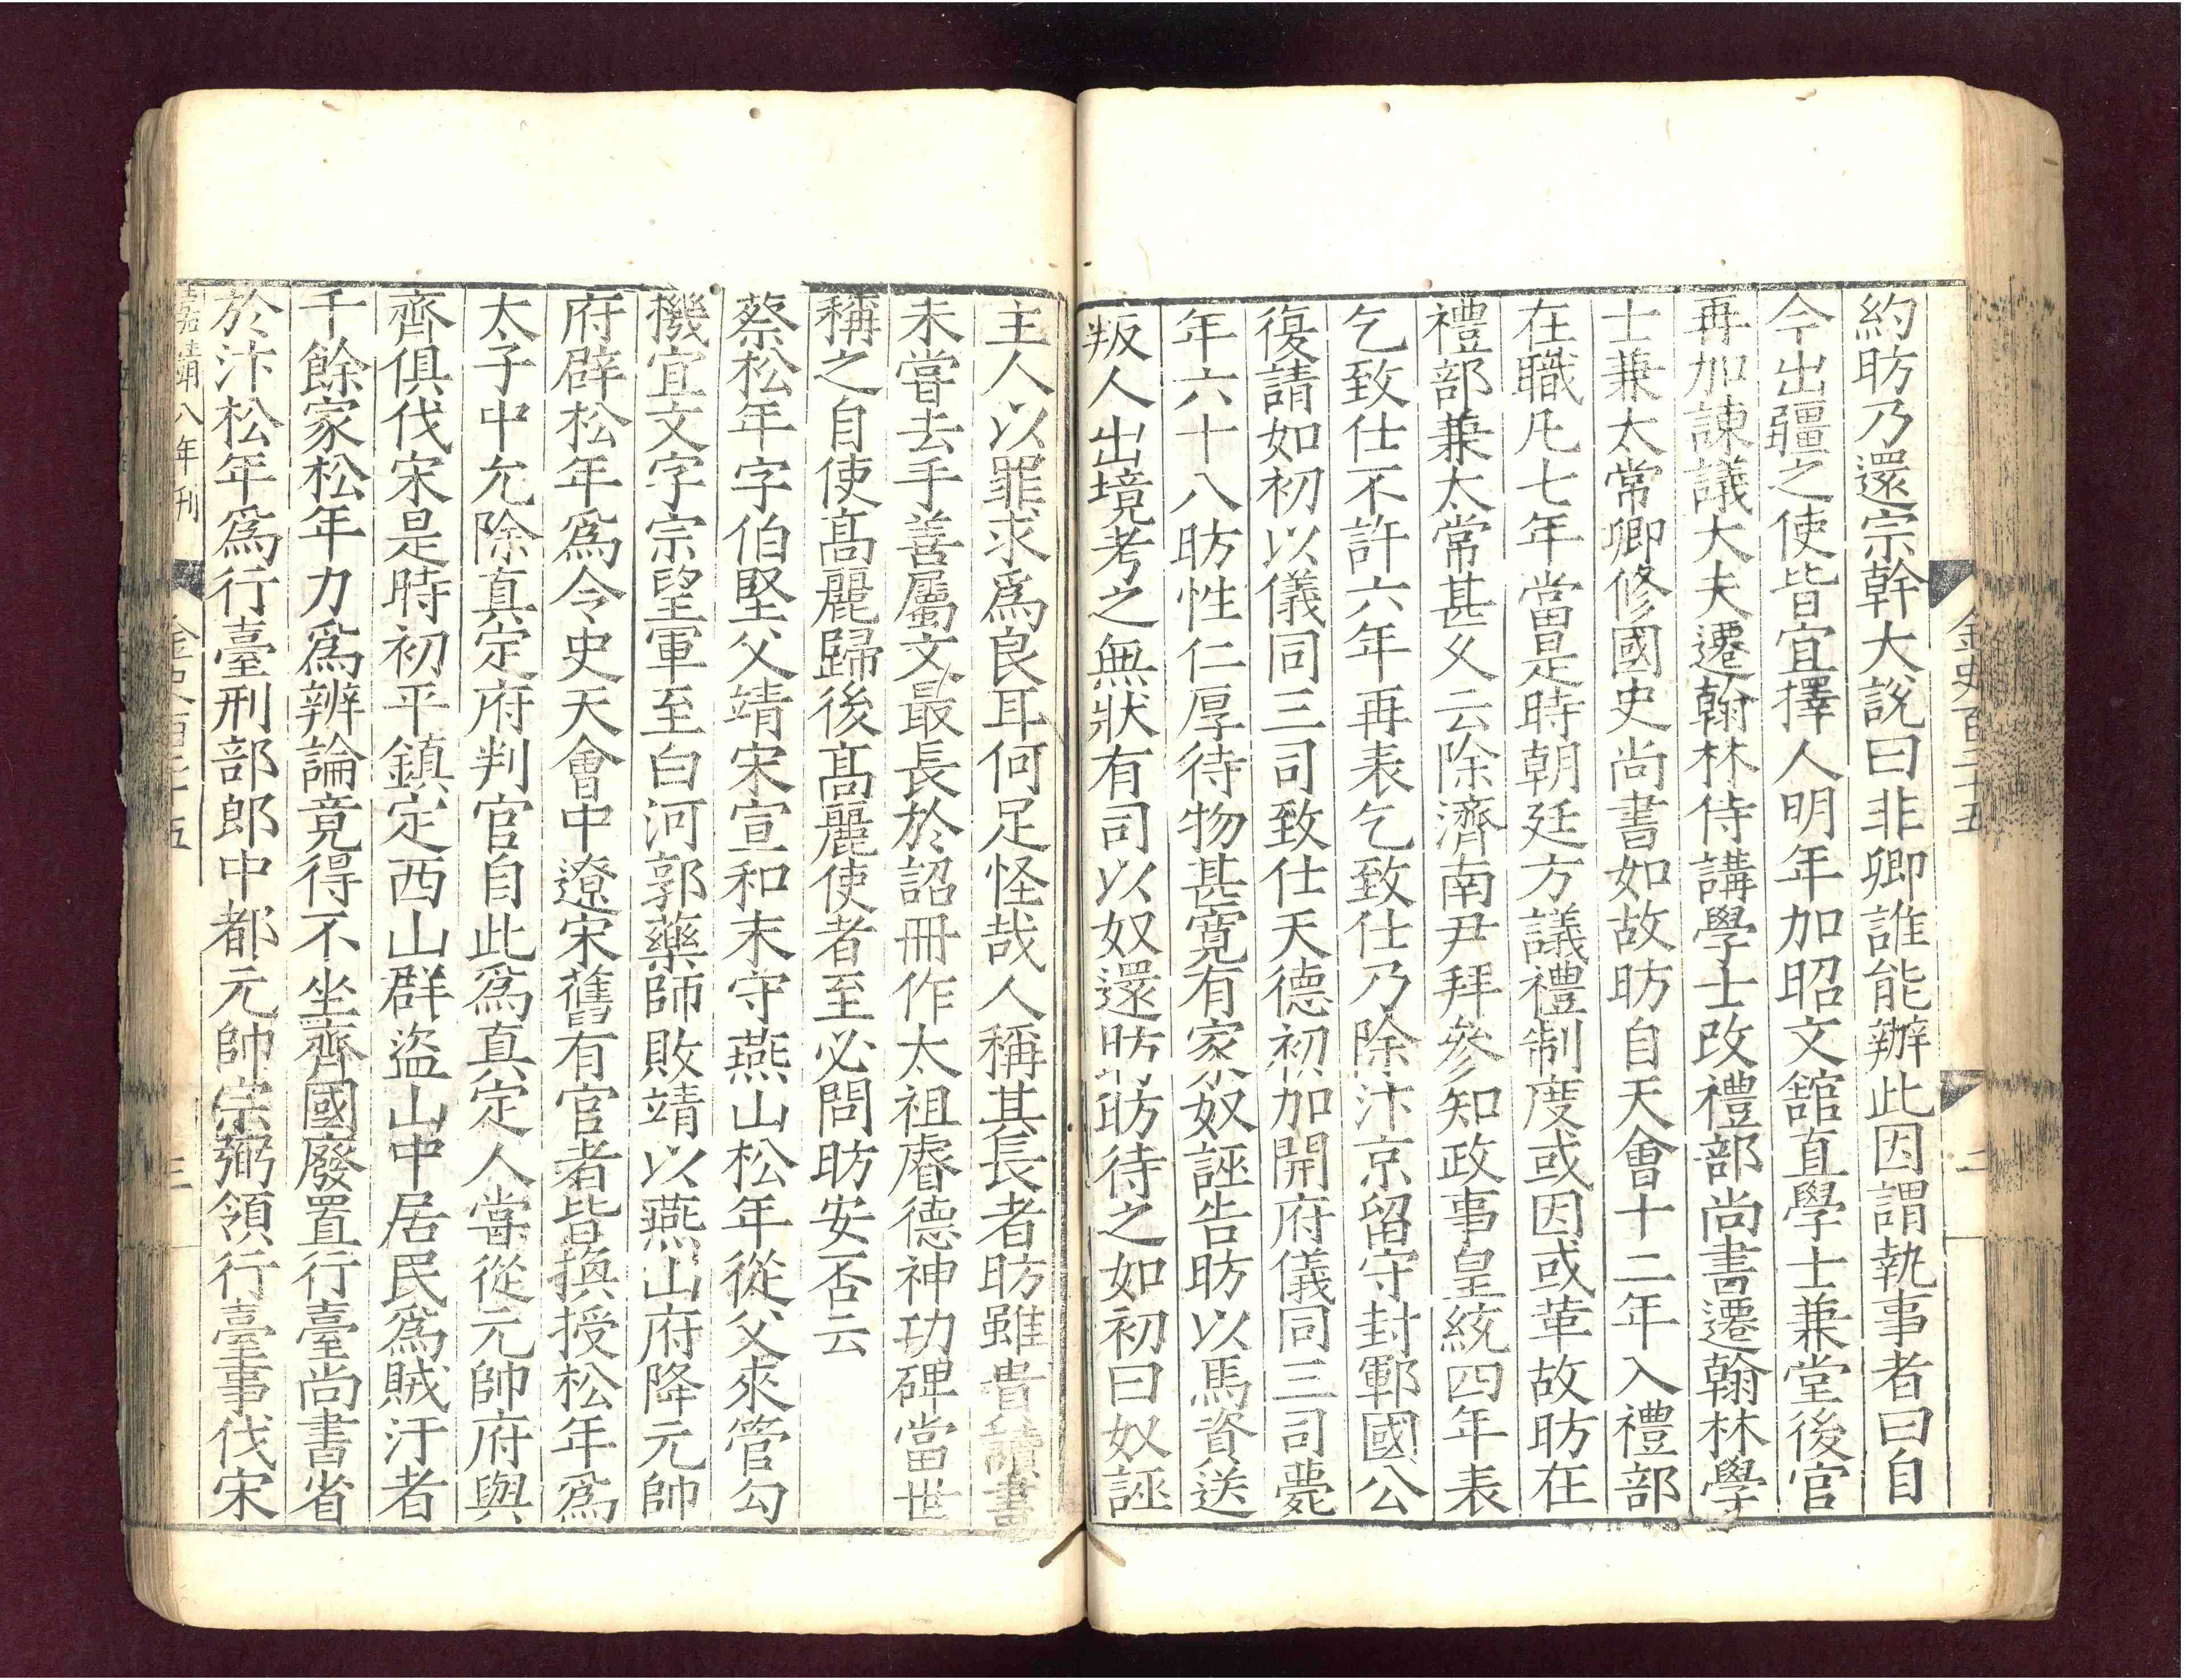 金史百二十五
二
約昉乃還宗幹大說曰非卿誰能辦此因謂執事者曰自
今出疆之使皆宜擇人明年加昭文舘直學士兼堂後官
再加諫議大夫遷翰林侍講學士改禮部尚書遷翰林學
士兼太常卿修國史尚書如故昉自天會十二年入禮部
在職凡七年當是時朝廷方議禮制度或因或革故昉在
禮部兼太常甚乆云除濟南尹拜參知政事皇統四年表
乞致仕不許六年再表乞致仕乃除汴京留守封鄆國公
復請如初以儀同三司致仕天德初加開府儀同三司薨
年六十八昉性仁厚待物甚寬有家奴誣告昉以馬資送
叛人出境考之無狀有司以奴還昉昉待之如初曰奴誣
主人以罪求爲良耳何足怪哉人稱其長者昉雖貴讀書
未甞去手善屬文最長於詔冊作太祖睿德神功碑當世
稱之自使髙麗歸後髙麗使者至必問昉安否云
蔡松年字伯堅父靖宋宣和末守燕山松年從父來管勾
機宜文字宗望軍至白河郭藥師敗靖以燕山府降元帥
府辟松年爲令史天會中遼宋舊有官者皆換授松年爲
太子中允除真定府判官自此爲真定人甞從元帥府與
齊俱伐宋是時初平鎮定西山群盜山中居民爲賊汙者
千餘家松年力爲辨論竟得不坐齊國廢置行臺尚書省
於汴松年爲行臺刑部郎中都元帥宗弼領行臺事伐宋
嘉靖八年刊
金史百二十五
三